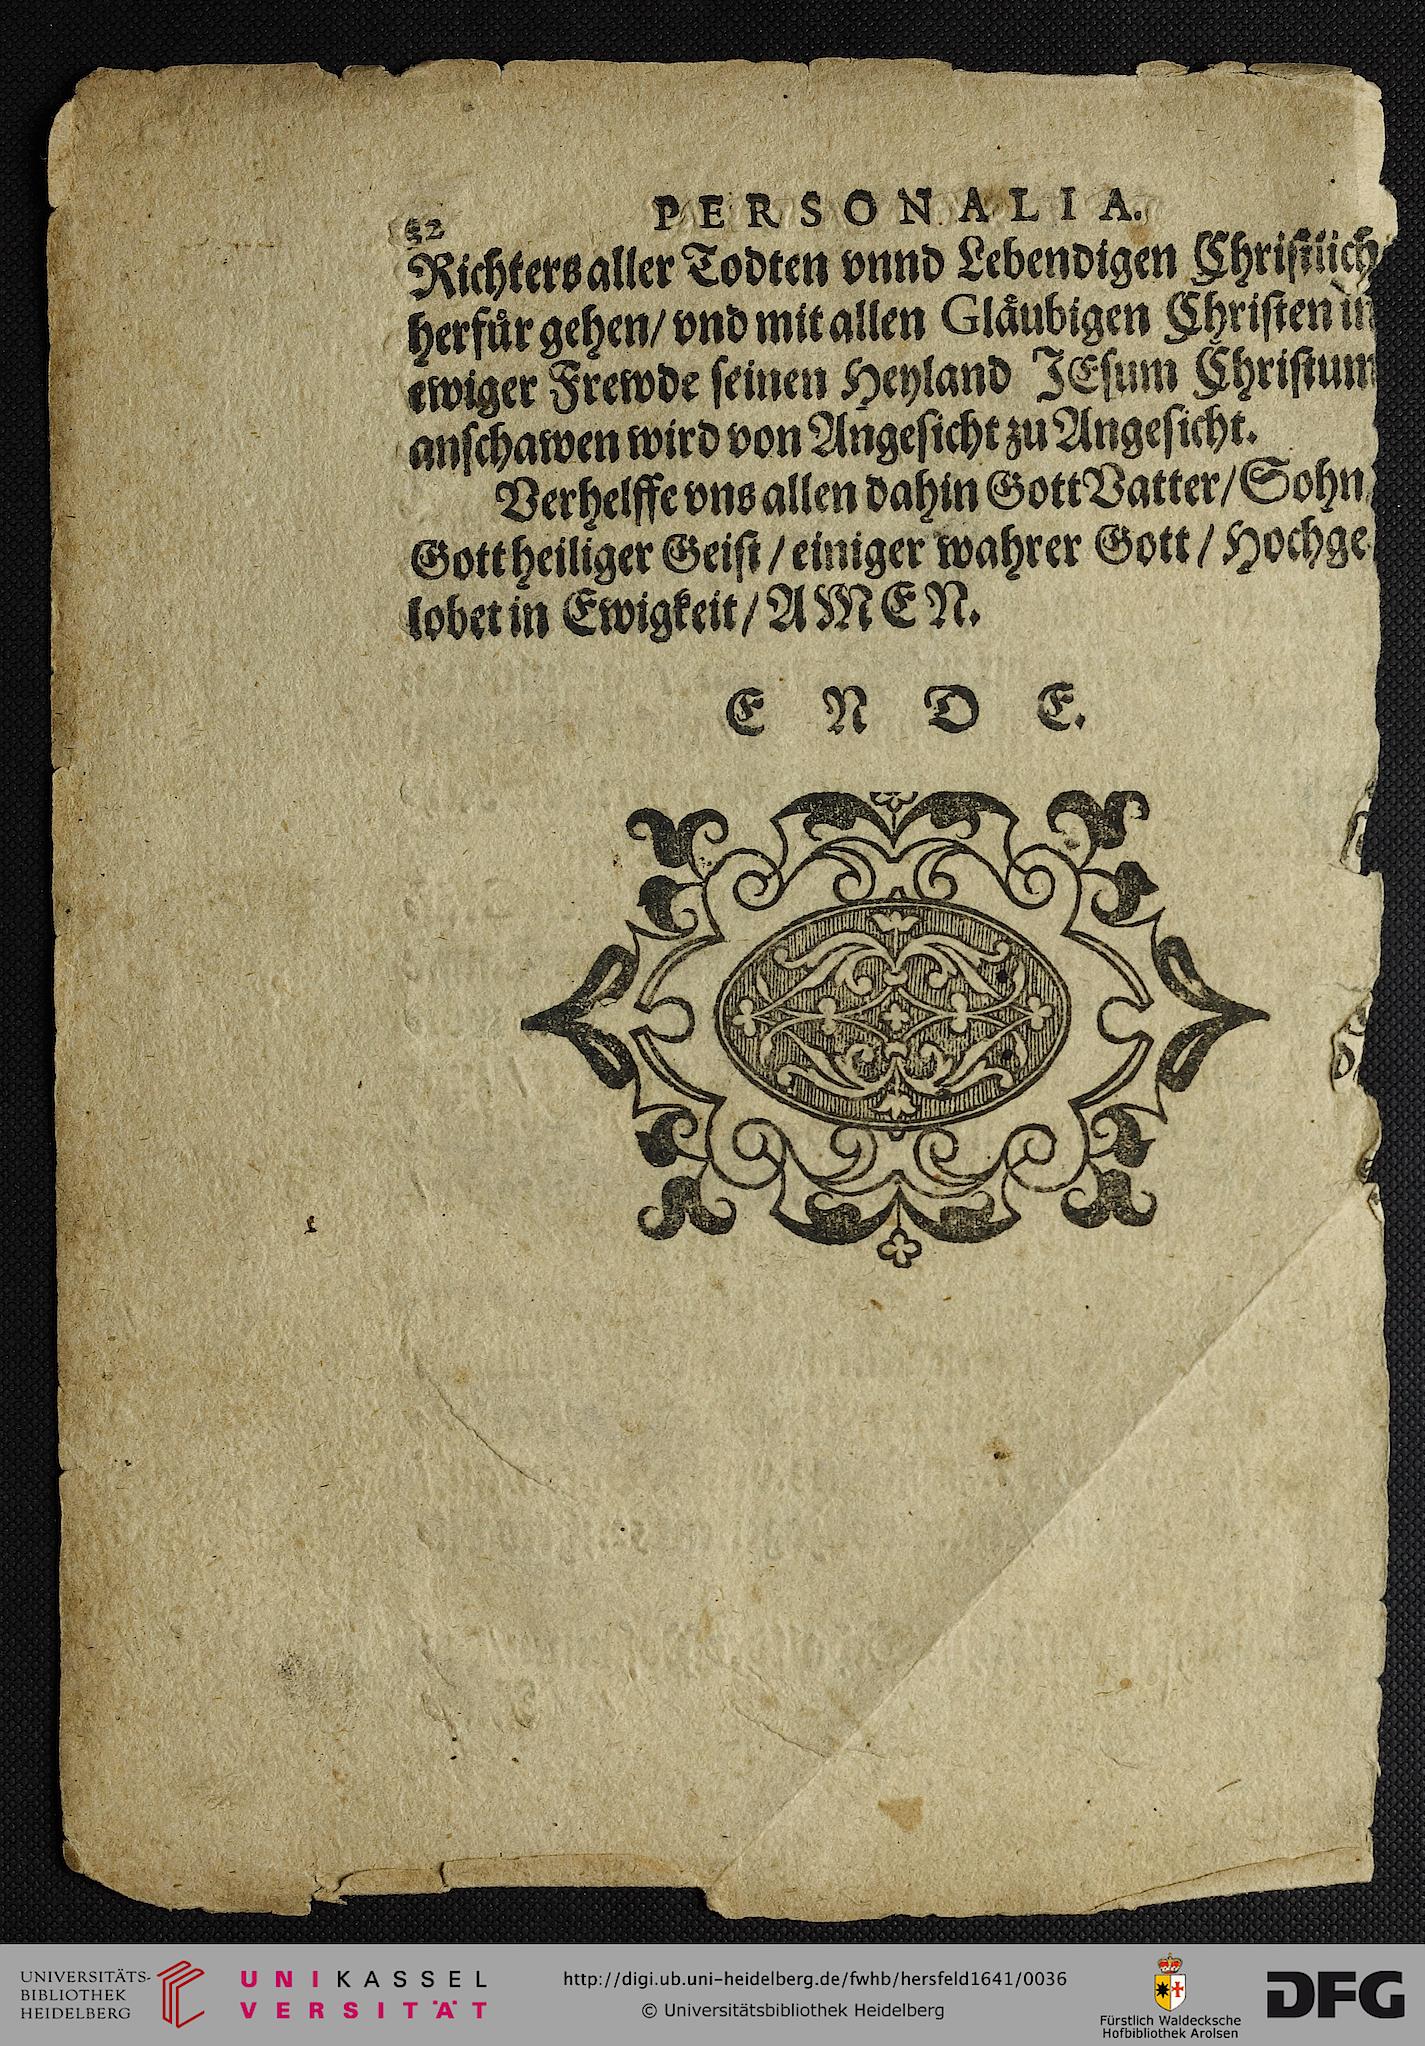 32
PERSONALIA.
Richters aller Todten vnnd Lebendigen Christlich
herfuͤr gehen/ vnd mit allen Glaͤubigen Christen in
ewiger Frewde seinen Heyland JEsum Christum
anschawen wird von Angesicht zu Angesicht.
Verhelffe vns allen dahin Gott Vatter/ Sohn
Gott heiliger Geist / einiger wahrer Gott / Hochge
lobet in Ewigkeit / AMEN.
ENDE.
UNIVERSITÄTS-
BIBLIOTHEK
HEIDELBERG
UNIKASSEL
VERSITÄT
http://digi.ub.uni-heidelberg.de/fwhb/hersfeld1641/0036
© Universitätsbibliothek Heidelberg
Fürstlich Waldecksche
Hofbibliothek Arolsen
DFG